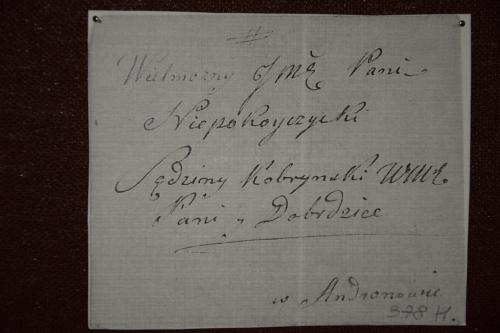 Wielmozny JMę Pani
Niepokoyczycki
Sędziny Kobrynski WMę
Pani y Dobrdzice
w Andronowie
378 H.